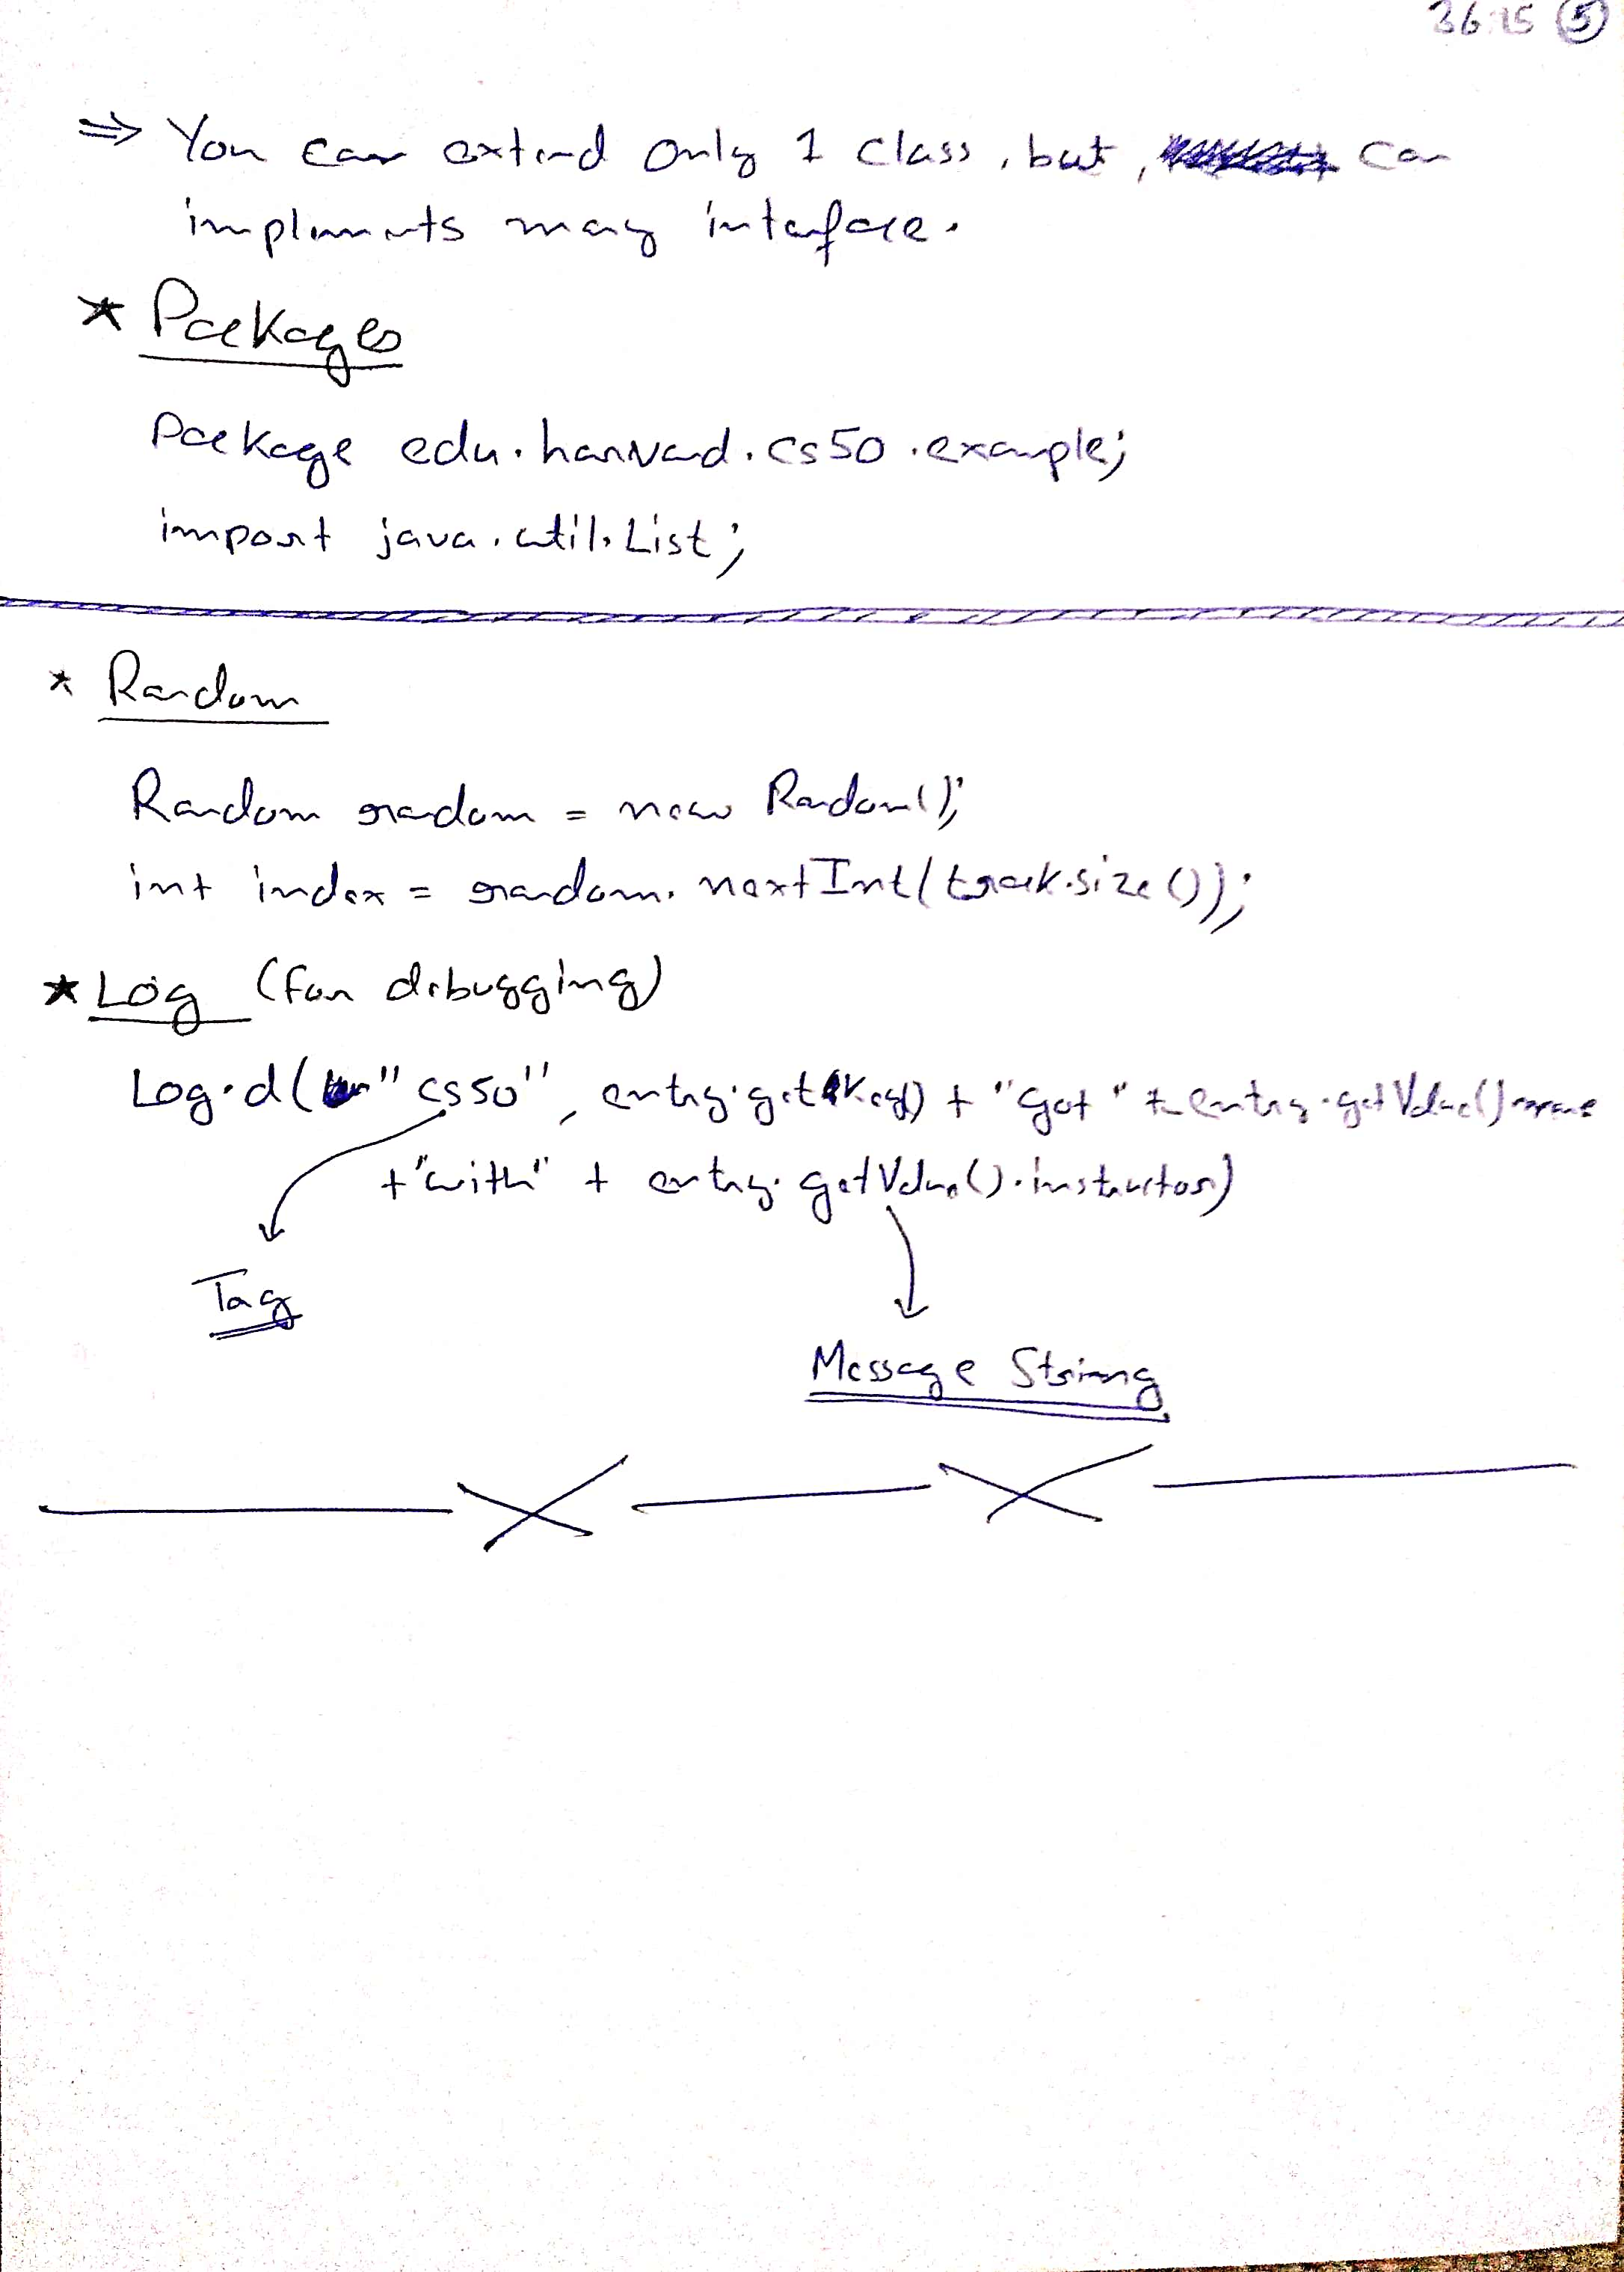 36:15 ⑤
⇒ You can extend only 1 class, but, can
implements many interface.
* Packages
Package edu.harvard.cs50.example;
import java.util.List;
* Random
Random random = new Random();
int index = random.nextInt(track.size());
* Log (for debugging)
Log.d("cs50", entry.getKey() + "got" + entry.getValue().name
+"with" + entry.getValue().instructor)
Tag
Message String